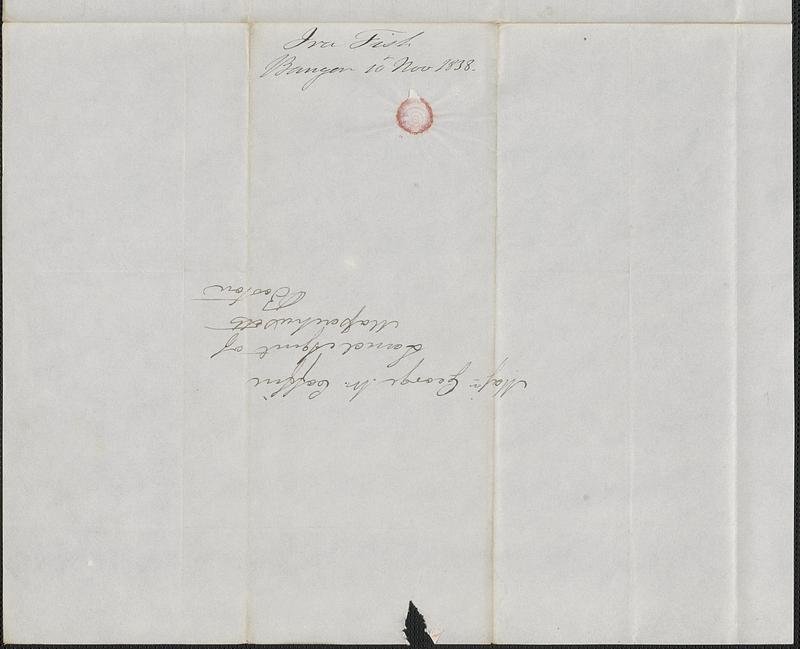 Ira Fish
Bangor 10 Nov 1838.
Majr. George W. Coffin
Land Agent of
Massachusetts
Boston